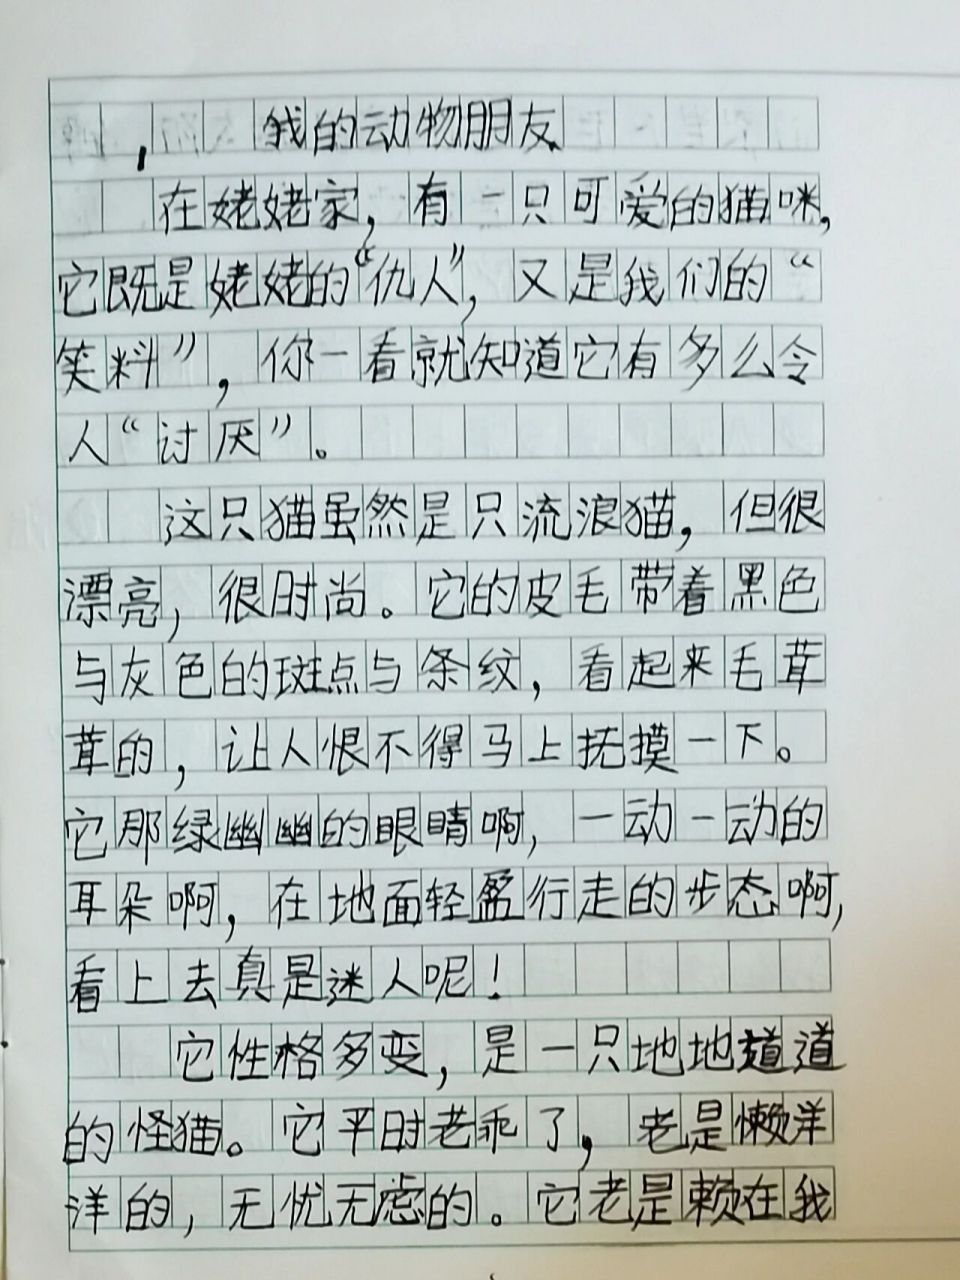 我的动物朋友
在姥姥家，有一只可爱的猫咪，
它既是姥姥的“仇人”，又是我们的“
笑料”，你一看就知道它有多么令
人“讨厌”。
这只猫虽然是只流浪猫，但很
漂亮，很时尚。它的皮毛带着黑色
与灰色的斑点与条纹，看起来毛茸
茸的，让人恨不得马上抚摸一下。
它那绿幽幽的眼睛啊，一动一动的
耳朵啊，在地面轻盈行走的步态啊，
看上去真是迷人呢！
它性格多变，是一只地地道道
的怪猫。它平时老乖了，老是懒洋
洋的，无忧无虑的。它老是赖在我